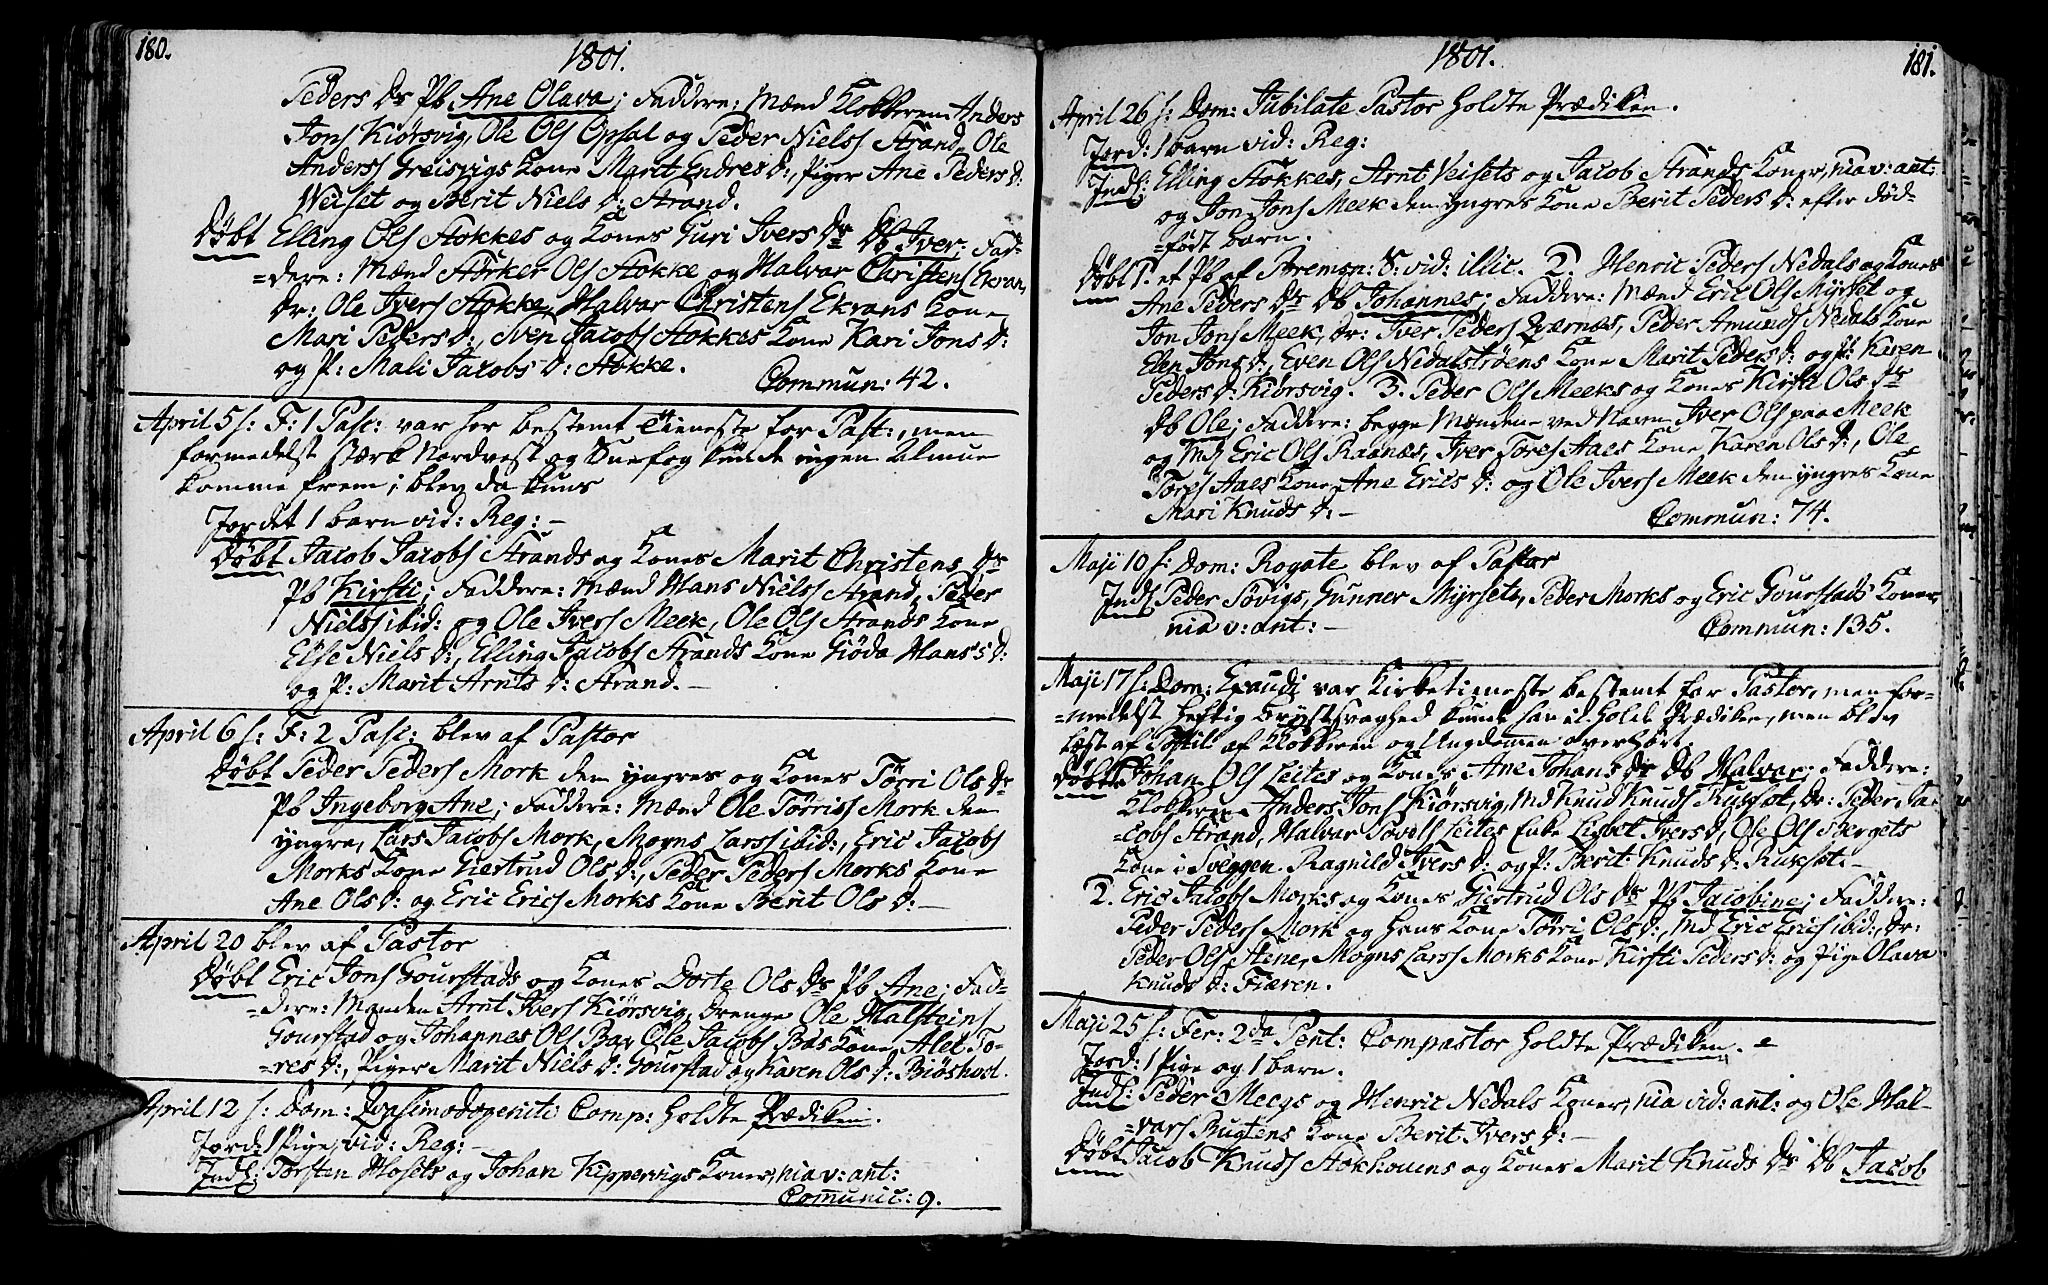 180.
1801.
Peders Dr Pb Ane Olava; Faddere: Mænd Klokkeren Anders
Jons Kiørsvig, Ole Ols Opsal og Peder Niels Strand, Ole
Anders Greisvigs Kone Marit Endres D:, Piger Ane Peders D:
Weiset og Berit Niels D: Strand.
Døbt Elling Ols Stokkes og Kones Guri Ivers Dr Db Iver; Fad-
=dere: Mænd Størker Ols Stokke og Halvar Christens Ekran,
Dr: Ole Ivers Stokke, Halvar Christens Ekrans Kone
Mari Peders D:, Sven Jacobs Stokkes Kone Kari Jons D:
og P: Mali Jacobs D: Stokke.
Commun: 42.
April 5 s: F: 1 Pasc: var her bestemt Tieneste for Past:, men
formedelst stærk Nordvest og Snefog kunde ingen Almue
komme frem; blev da kuns
Jordet 1 barn vid: Reg: -
Døbt Jacob Jacobs Strands og Kones Marit Christens Dr
Pb Kirsti; Faddere: Mænd Hans Niels Strand, Peder
Niels ibid: og Ole Ivers Meek, Ole Ols Strands Kone
Else Niels D:, Elling Jacobs Strands Kone Giøda Hans's D:
og P: Marit Arnts D: Strand. -
April 6 s: F: 2 Pasc: blev af Pastor
Døbt Peder Peders Mork den yngres og Kones Tørri Ols Dr
Pb Ingeborg Ane; Faddere: Mænd Ole Tørris Mork den
yngre, Lars Jacobs Mork, Mogns Lars ibid:, Eric Jacobs
Morks Kone Giertrud Ols D:, Peder Peders Morks Kone
Ane Ols D: og Eric Erics Morks Kone Berit Ols D: -
April 20 blev af Pastor
Døbt Eric Jons Gourstads og Kones Dorte Ols Dr Pb Ane; Fad-
=dere: Manden Arnt Ivers Kiørsvig, Drenge Ole Halsteins
Gourstad og Johannes Ols Bay, Ole Jacobs Bas Kone Alet To-
=res D:, Piger Marit Niels D: Gourstad og Karen Ols D: Biøshol.
April 12 s: Dom: Qvasimodogeniti Comp: holdte Prædiken.
Jord: 1 Pige, vid: Reg: -
Indl: Torsten Hosets og Johan Kippervigs Koner, nia v: ant:
Communic: 9.
1801.
181.
April 26 s: Dom: Jubilate Pastor holdte Prædiken.
Jord: 1 barn vid: Reg:
Indl: Elling Stokkes, Arnt Veisets og Jacob Strands Koner, nia v: ant:
og Jon Jons Meek den yngres Kone Berit Peders D: efter død-
=født barn.
Døbt 1. et Pb af Bremsn: S: vid: illic. 2. Henric Peders Nedals og Kones
Ane Peders Dr Db Johannes; Faddere: Mænd Eric Ols Myrset og
Jon Jons Meek, Dr: Iver Peders Qværnæs, Peder Amunds Nedals Kone
Elen Jons D:, Even Ols Nedalstrøens Kone Marit Peders D: og P: Karen
Peders D: Kiørsvig. 3. Peder Ols Meeks og Kones Kirsti Ols Dr
Db Ole; Faddere: begge Mændene ved Navn Iver Ols paa Meek
og Md Eric Ols Raanæs, Iver Tores Aaes Kone Karen Ols D:, Ole
Tores Aaes Kone Ane Erics D: og Ole Ivers Meek den yngres Kone
Mari Knuds D: -
Commun: 74.
Maji 10 s: Dom: Rogate blev af Pastor
Indl Peder Søvigs, Gunner Myrsets, Peder Morks og Eric Gourstads Koner,
nia v: ant: -
Commun: 135.
Maji 17 s: Dom: Exaudi var Kirketieneste bestemt for Pastor, men for-
=medelst heftig Brystsvaghed kunde han ei holde Prædiken, men blev
læst af Postill af Klokkeren og Ungdommen overhørt.
Døbt 1. Johan Ols Leites og Kones Ane Johans Dr Db Halvar; Faddere:
Klokkeren Anders Jons Kiørsvig, Md Knud Knuds Ruxhot, Dr: Peder Ja-
=cobs Strand, Halvar Leites Enke Lisbet Ivers D:, Ole Ols Bergets
Kone i Sveggen Ragnild Ivers D: og P: Berit Knuds D: Ruxhot. -
2. Eric Jacobs Morks og Kones Giertrud Ols Dr Pb Jacobine; Faddere:
Peder Peders Mork og hans Kone Tørri Ols D:, Md Eric Erics ibid:, Dr:
Peder Ols Stene, Mogns Lars Morks Kone Kirsti Peders D: og Pige Olava
Knuds D: Fiæren.
Maji 25 s: Fer: 2da Pent: Compastor holdte Prædiken.
Jord: 1 Pige og 1 barn.
Indl: Peder Meegs og Henric Nedals Koner, nia vid: ant: og Ole Hal-
=vars Bugtens Kone Berit Ivers D: -
Døbt Jacob Knuds Stokhoums og Kones Marit Knuds Dr Db Jacob